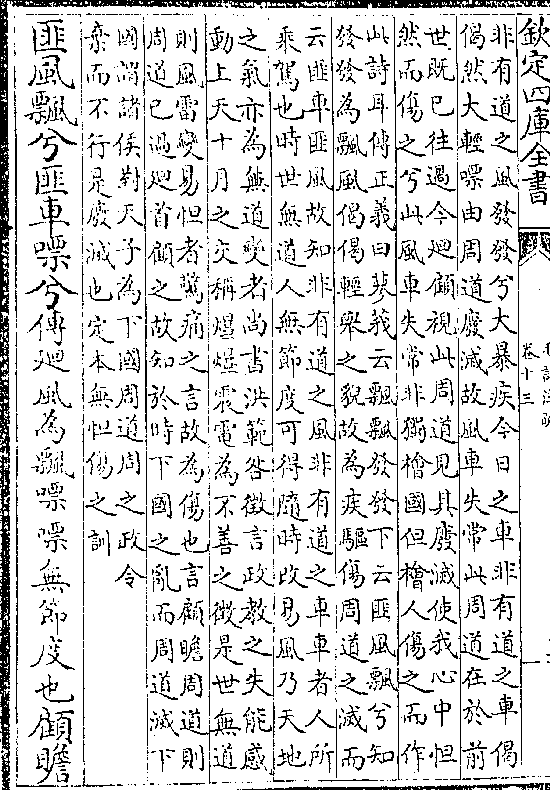 欽定四庫全書
卷十三
非有道之風發發兮大暴疾今日之車非有道之車偈
偈然大輕嘌由周道廢滅故風車失常此周道在於前
世既已往過今廻顧視此周道見其廢滅使我心中怛
然而傷之兮此風車失常非獨檜國但檜人傷之而作
此詩耳傳正義曰蓼莪云飄飄發發下云匪風飄兮知
發發為飄風偈偈輕舉之貌故為疾驅傷周道之滅而
云匪車匪風故知非有道之風非有道之車車者人所
乘駕也時世無道人無節度可得隨時改易風乃天地
之氣亦為無道變者尚書洪範咎徵言政教之失能感
動上天十月之交稱爗爗震電為不善之徵是世無道
則風雷變易怛者驚痛之言故為傷也言顧瞻周道則
周道已過廻首顧之故知於時下國之亂而周道滅下
國謂諸侯對天子為下國周道周之政令
棄而不行是廢滅也定本無怛傷之訓
匪風飄兮匪車嘌兮傳廻風為飄嘌嘌無節度也顧瞻